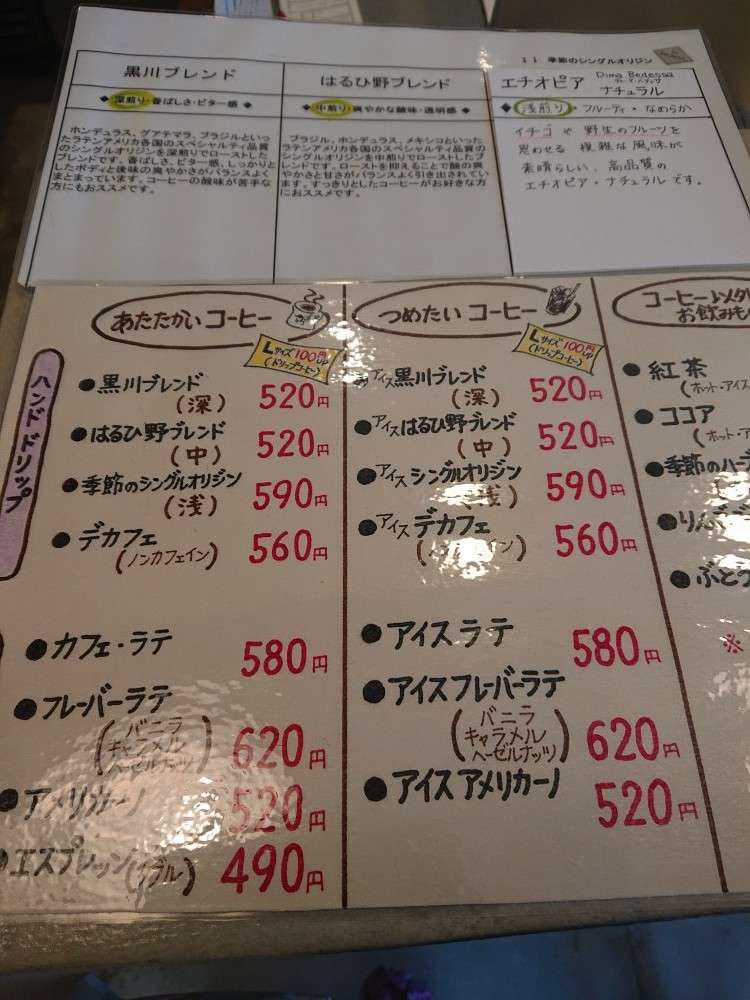 11 季節のシングルオリジン
黒川ブレンド
◆深煎り・香ばしさ・ビター感◆
ホンデュラス、グアテマラ、ブラジルといっ
たラテンアメリカ各国のスペシャルティ品質
のシングルオリジンを深煎りでローストした
ブレンドです。香ばしさ、ビター感、しっかりと
したボディと後味の爽やかさがバランスよく
まとまっています。コーヒーの酸味が苦手な
方にもおススメです。
はるひ野ブレンド
◆中煎り・爽やかな酸味・透明感◆
ブラジル、ホンデュラス、メキシコといっ
たラテンアメリカ各国のスペシャルティ品質
のシングルオリジンを中煎りでローストした
ブレンドです。ローストを抑えることで酸の爽
やかさと甘さがバランスよく引き出されていま
す。すっきりとしたコーヒーがお好きな方
におススメです。
エチオピア Dima Bedessa
ナチュラル
浅煎り・フルーティ・なめらか
イチゴや野生のフルーツを
思わせる複雑な風味が
素晴らしい、高品質の
エチオピア・ナチュラルです。
ハンドドリップ
あたたかいコーヒー
Lサイズ100円UP
(ドリップコーヒー)
●黒川ブレンド
(深) 520円
●はるひ野ブレンド
(中) 520円
●季節のシングルオリジン
(浅) 590円
●デカフェ
(ノンカフェイン) 560円
●カフェ・ラテ 580円
●フレーバーラテ
(バニラ
キャラメル
ヘーゼルナッツ) 620円
●アメリカーノ 520円
●エスプレッソ(ダブル) 490円
つめたいコーヒー
Lサイズ100円UP
(ドリップコーヒー)
●アイス黒川ブレンド
(深) 520円
●アイスはるひ野ブレンド
(中) 520円
●アイスシングルオリジン
(浅) 590円
●アイスデカフェ
(ノンカフェイン) 560円
●アイスラテ 580円
●アイスフレーバーラテ
(バニラ
キャラメル
ヘーゼルナッツ) 620円
●アイスアメリカーノ 520円
コーヒー以外
お飲みもの
●紅茶
(ホット・アイス
●ココア
(ホット・ア
●季節のハーブ
●りんご
●ぶどう
※